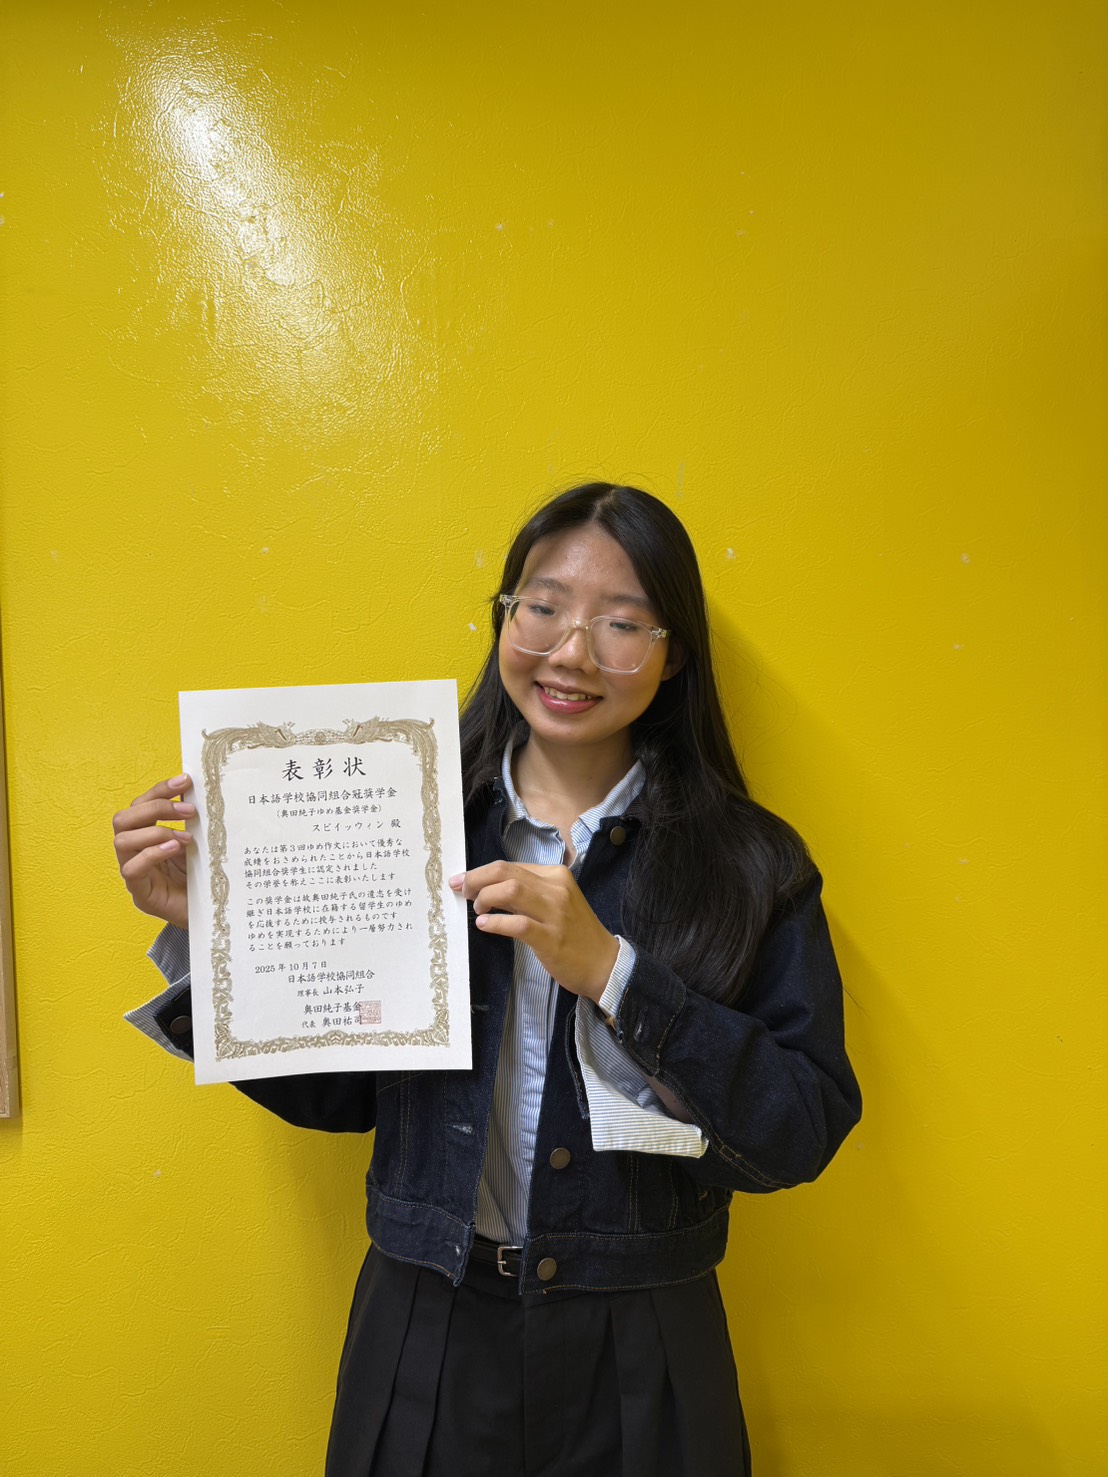 表彰状
日本語学校協同組合冠奨学金
(奥田純子ゆめ基金奨学金)
スビイッウィン 殿
あなたは第3回ゆめ作文において優秀な
成績をおさめられたことから日本語学校
協同組合奨学生に認定されました
その学誉を称えここに表彰いたします
この奨学金は故奥田純子氏の遺志を受け
継ぎ日本語学校に在籍する留学生のゆめ
を応援するために授与されるものです
ゆめを実現するためにより一層努力され
ることを願っております
2025年10月7日
日本語学校協同組合
理事長 山本弘子
奥田純子基金
代表 奥田祐司